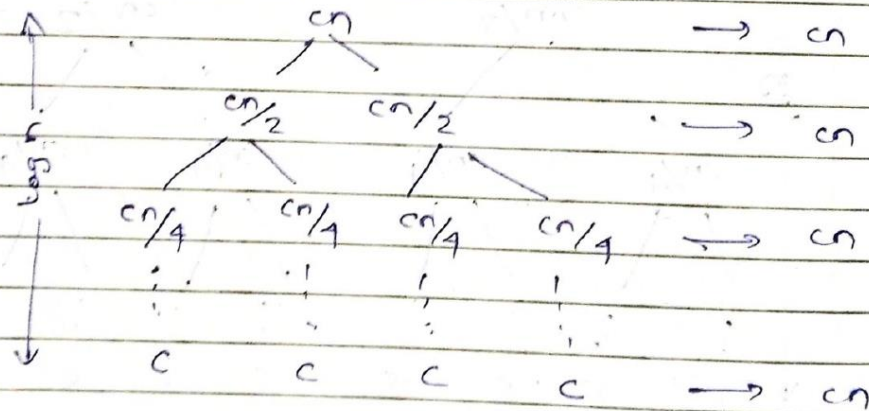 cn → cn
cn/2 cn/2 → cn
log n
cn/4 cn/4 cn/4 cn/4 → cn
c c c c → cn